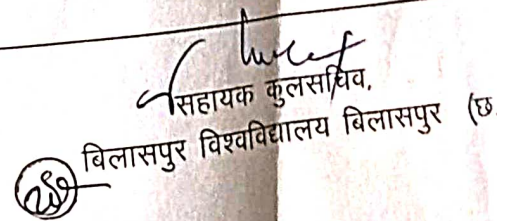 सहायक कुलसचिव,
बिलासपुर विश्वविद्यालय बिलासपुर (छ.